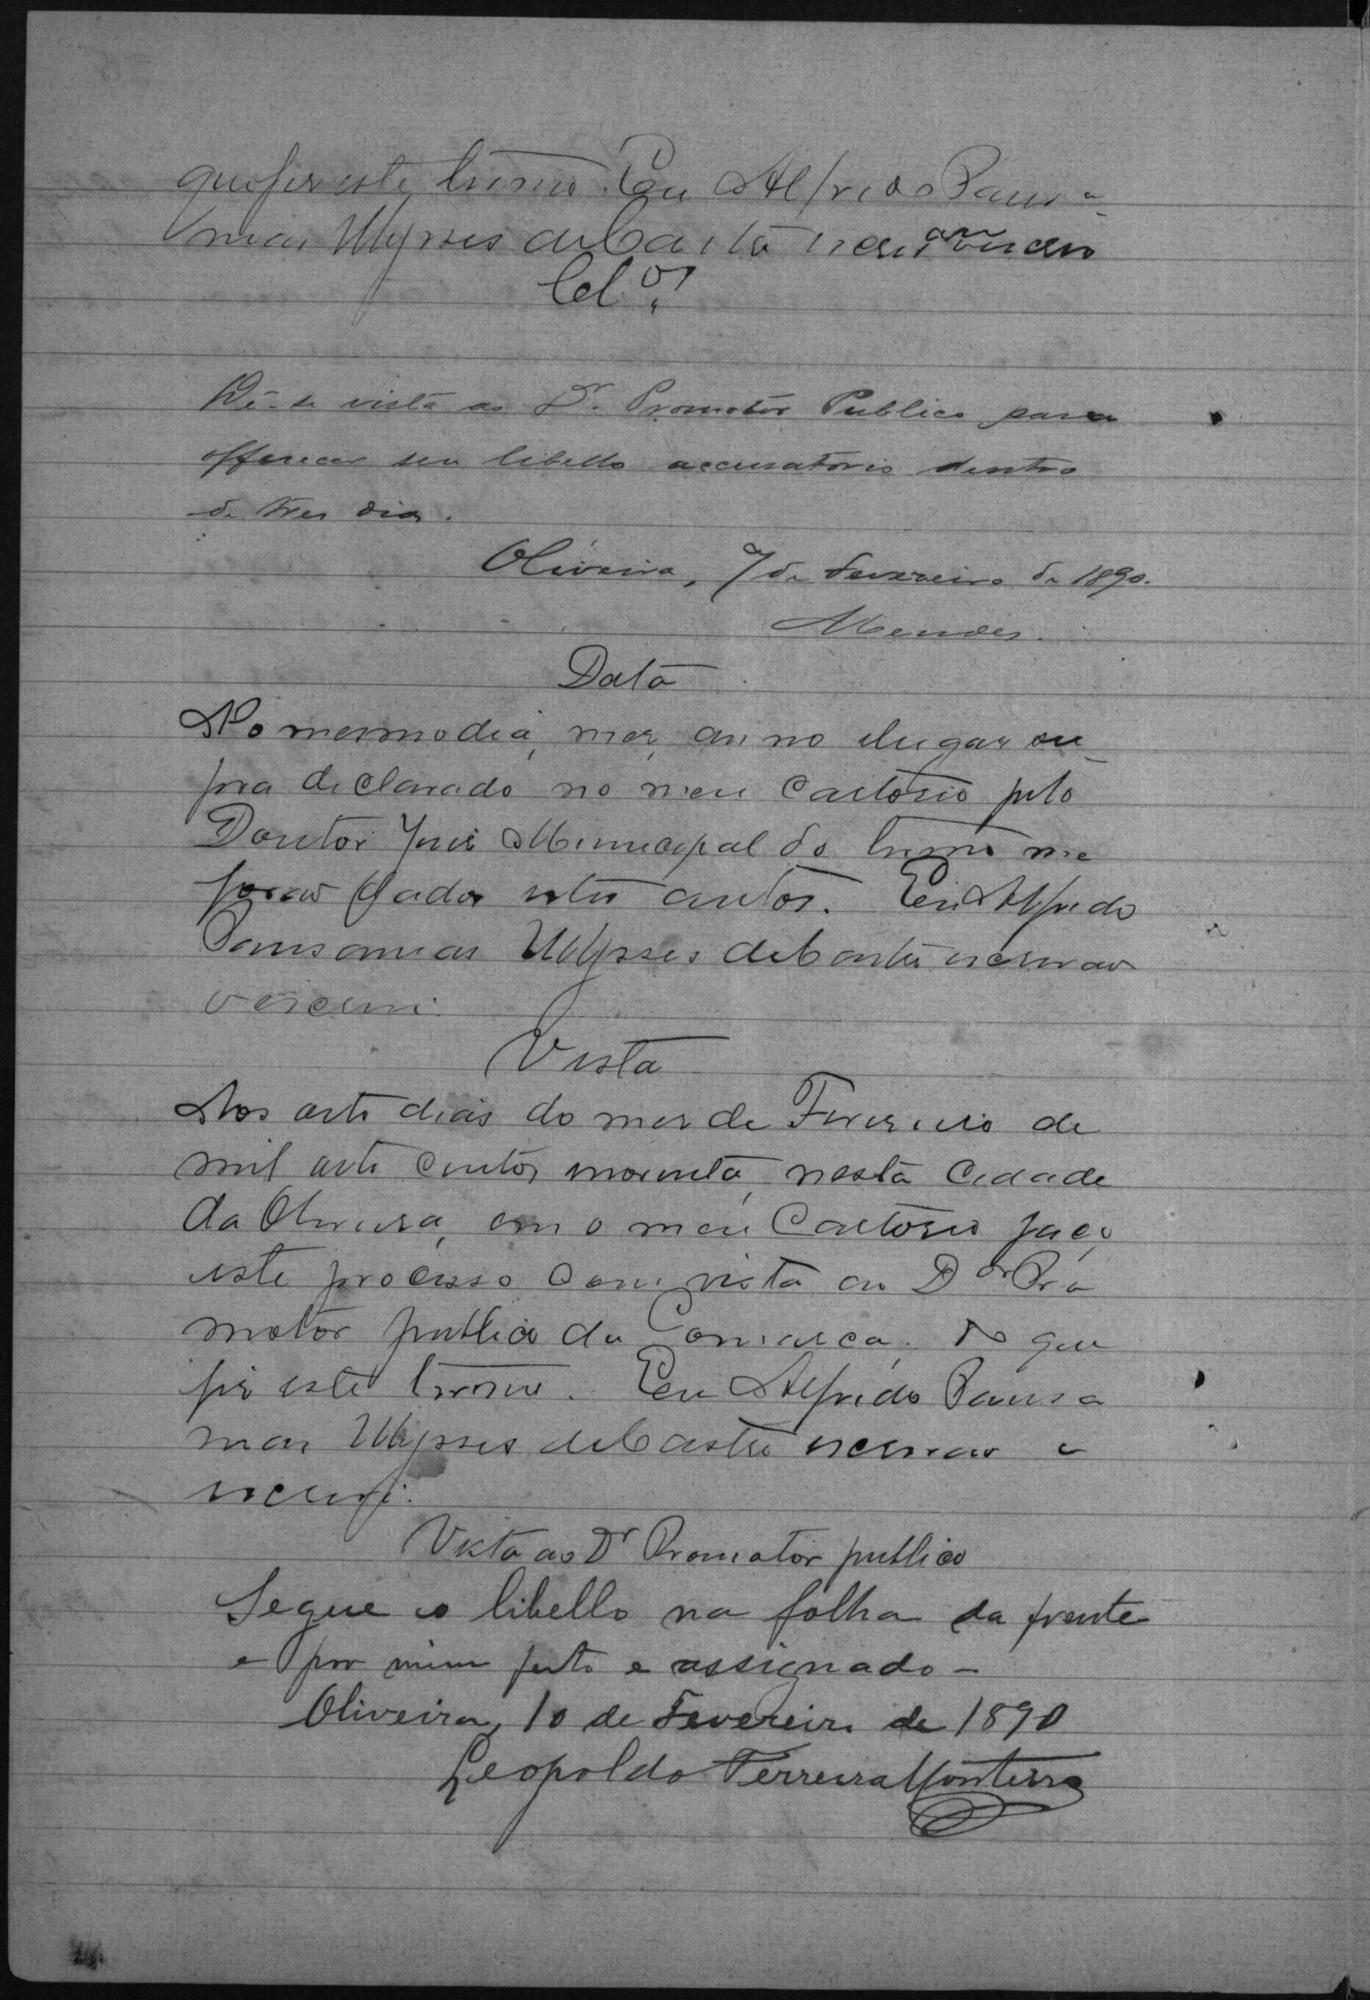 que fiz este termo. Eu Alfredo Pausa
nias Ulysses de Castro escrivão
Cl.os
Dê-se vista ao Dr. Promotor Publico para
offerecer seu libello accusatorio dentro
de tres dias.
Oliveira, 7 de Fevereiro de 1890.
Mendes.
Data
No mesmo dia, mez, anno e lugar su
pra declarado no meu Cartorio pelo
Doutor Juiz Municipal do termo me
forão dados estes autos. Eu Alfredo
Pausanias Ulysses de Castro escrivão
o escrevi.
Vista
Aos oito dias do mez de Fevereiro de
mil oito centos noventa, nesta Cidade
da Oliveira, em o meu Cartorio faço
este processo com vista ao Dor Pro
motor publico da Comarca. Do que
fiz este termo. Eu Alfredo Pausa
nias Ulysses de Castro escrivão o
escrevi.
Vista ao Dr Promotor publico
Segue o libello na folha da frente
e por mim feito e assignado -
Oliveira, 10 de Fevereiro de 1890
Leopoldo Ferreira Monteiro